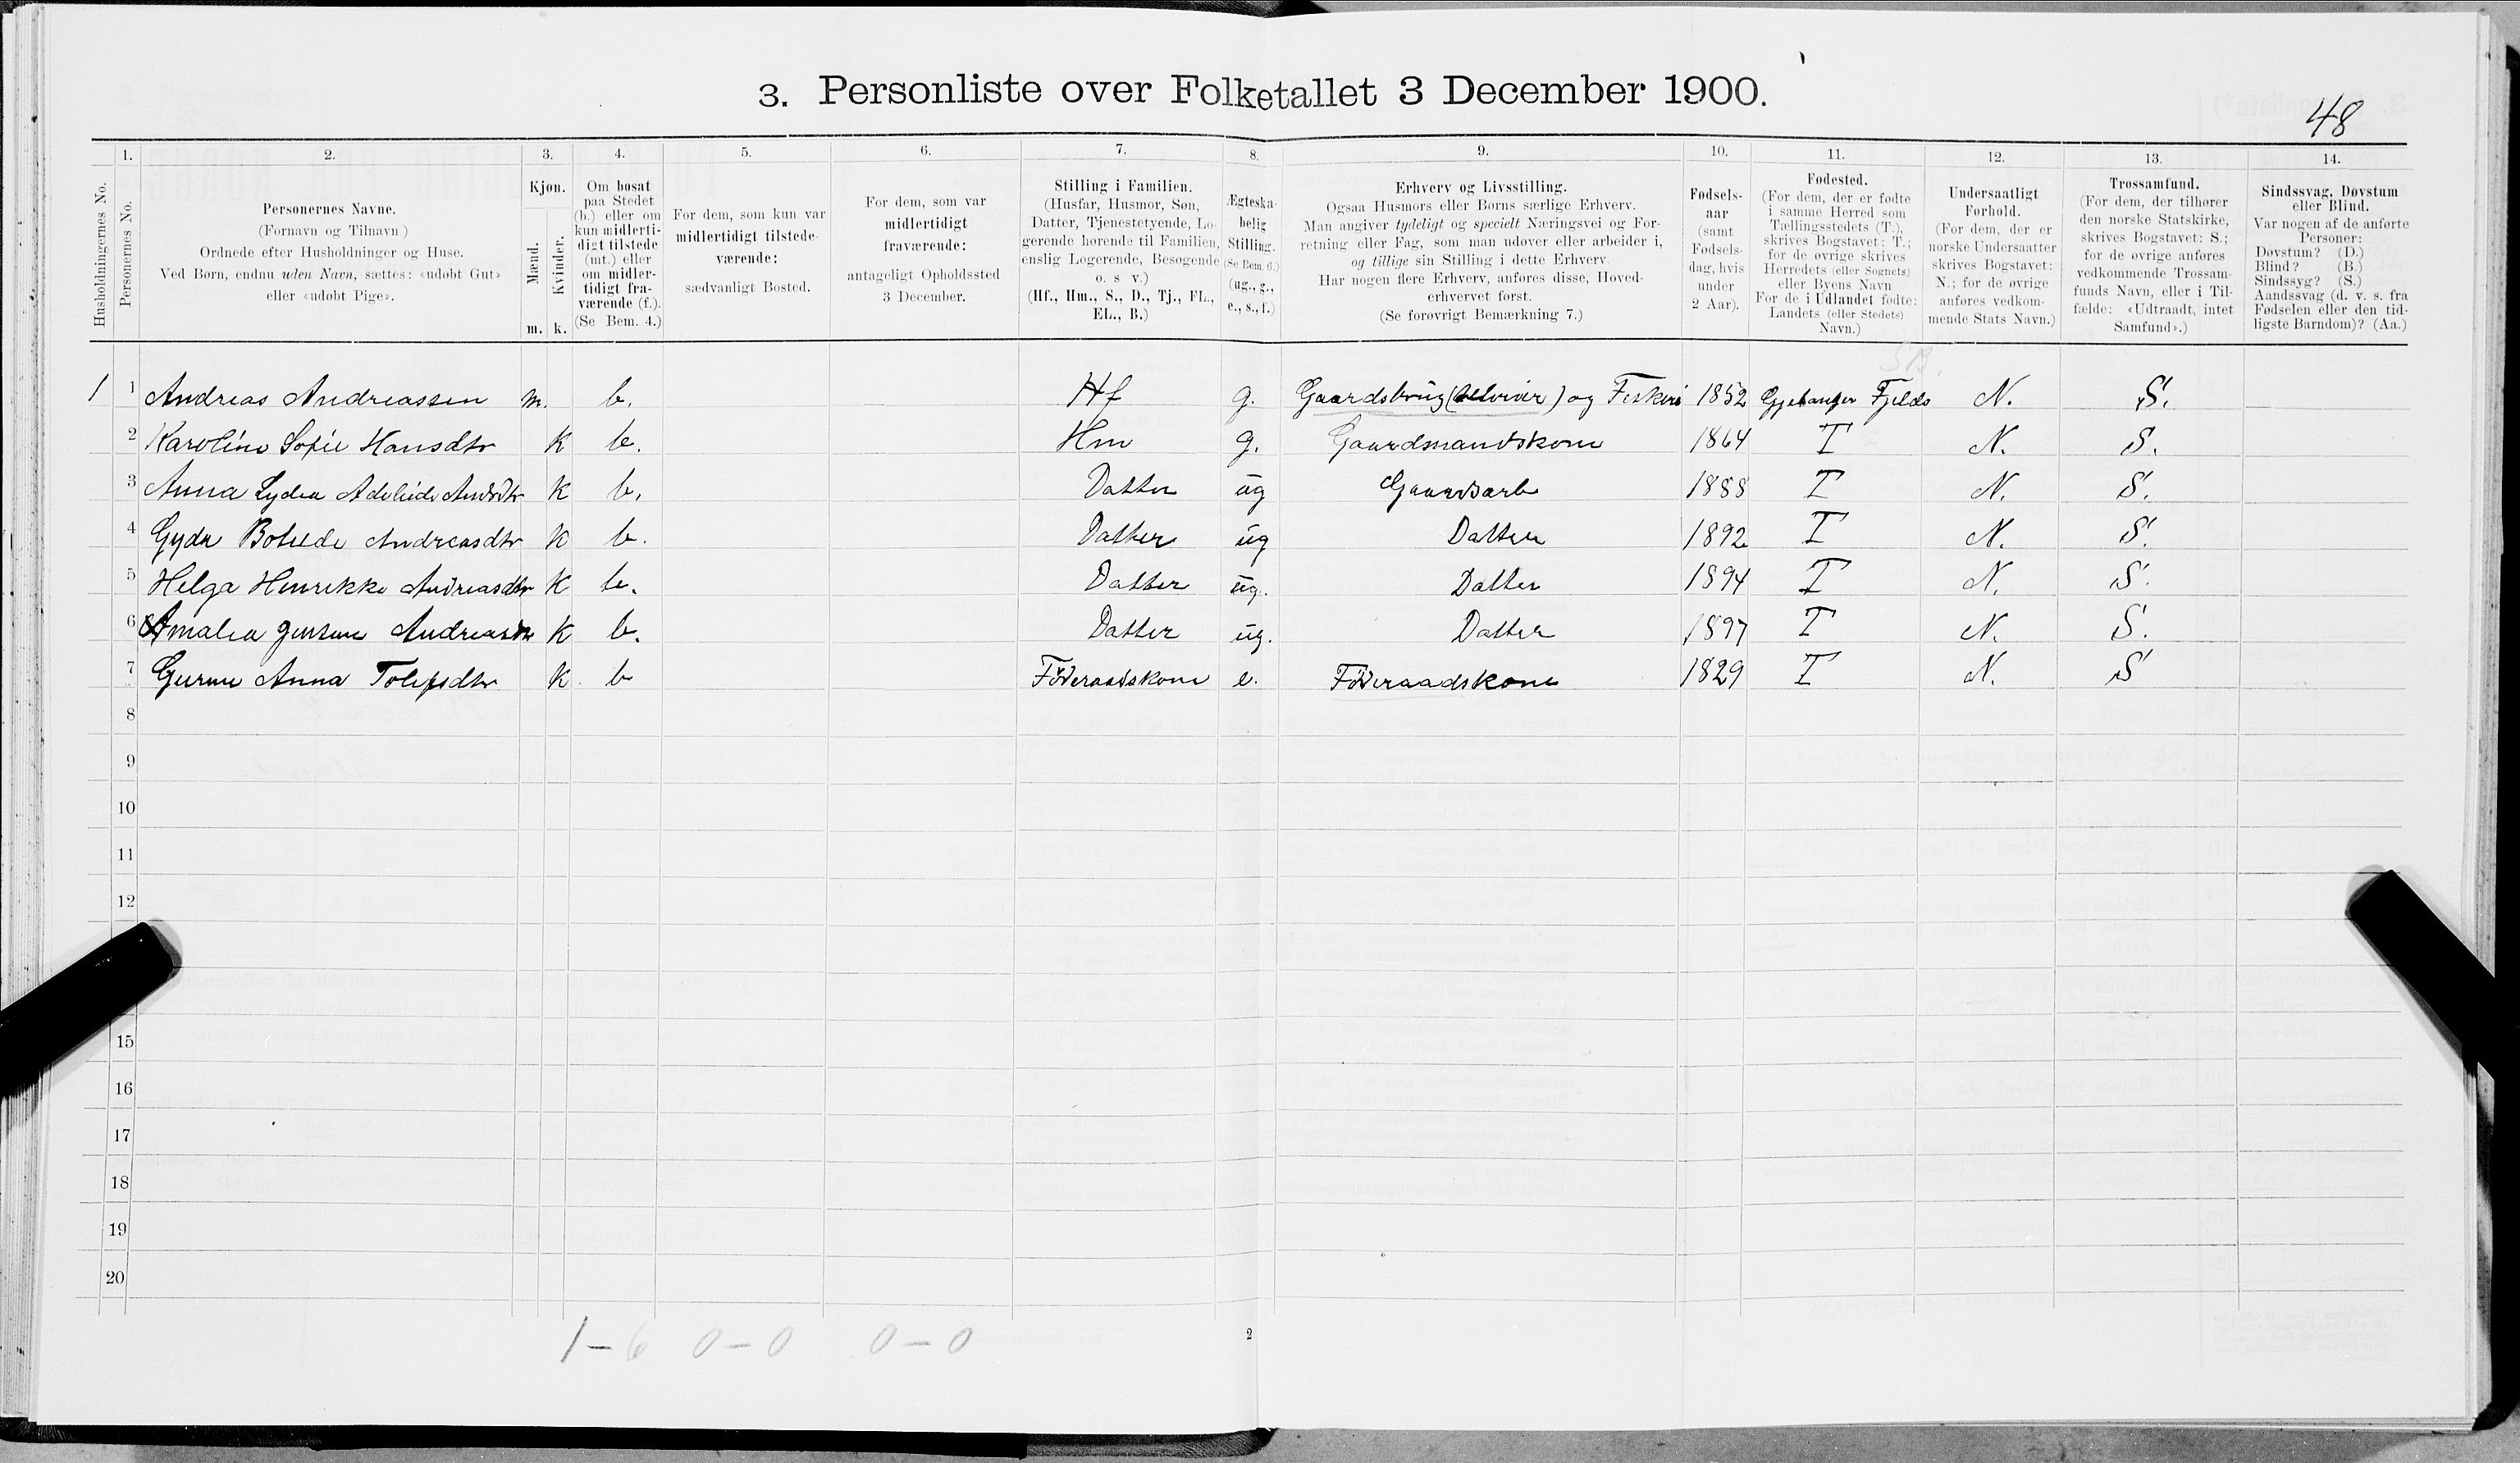 3. Personliste over Folketallet 3 December 1900.
48
1. 2. 3. 4. 5. 6. 7. 8. 9. 10. 11. 12. 13. 14.
Husholdningernes No.
Personernes No.
Personernes Navne.
(Fornavn og Tilnavn )
Ordnede efter Husholdninger og Huse.
Ved Børn, endnu uden Navn, sættes: «udøbt Gut»
eller «udøbt Pige».
Kjøn.
Mænd.
Kvinder.
m. k.
Om bosat
paa Stedet
(b.) eller om
kun midlerti-
digt tilstede
(mt.) eller
om midler-
tidigt fra-
værende (f.).
(Se Bem. 4.)
For dem, som kun var
midlertidigt tilstede-
værende:
sædvanligt Bosted.
For dem, som var
midlertidigt
fraværende:
antageligt Opholdssted
3 December.
Stilling i Familien.
(Husfar, Husmor, Søn,
Datter, Tjenestetyende, Lo-
gerende hørende til Familien,
enslig Logerende, Besøgende
o. s v.)
(Hf., Hm., S., D., Tj., FL.,
EL., B.)
Ægteska-
belig
Stilling.
(Se Bem. 6.)
(ug., g.,
e., s., f.)
Erhverv og Livsstilling.
Ogsaa Husmors eller Børns særlige Erhverv.
Man angiver tydeligt og specielt Næringsvei og For-
retning eller Fag, som man udøver eller arbeider i,
og tillige sin Stilling i dette Erhverv.
Har nogen flere Erhverv, anføres disse, Hoved-
erhvervet først.
(Se forøvrigt Bemærkning 7.)
Fødsels-
aar
(samt
Fødsels-
dag, hvis
under
2 Aar).
Fødested.
(For dem, der er fødte
i samme Herred som
Tællingsstedets (T.),
skrives Bogstavet: T.;
for de øvrige skrives
Herredets (eller Sognets)
eller Byens Navn
For de i Udlandet fødte:
Landets (eller Stedets)
Navn.)
Undersaatligt
Forhold.
(For dem, der er
norske Undersaatter
skrives Bogstavet:
N.; for de øvrige
anføres vedkom-
mende Stats Navn.)
Trossamfund.
(For dem, der tilhører
den norske Statskirke,
skrives Bogstavet: S.;
for de øvrige anføres
vedkommende Trossam-
funds Navn, eller i Til-
fælde: «Udtraadt, intet
Samfund».)
Sindssvag, Døvstum
eller Blind.
Var nogen af de anførte
Personer:
Døvstum? (D.)
Blind? (B.)
Sindssyg? (S.)
Aandssvag (d. v. s. fra
Fødselen eller den tid-
ligste Barndom)? (Aa.)
1 1 Andreas Andreassen m. b. Hf g. Gaardsbrug (selveier) og Fiskeri 1852 Fjelds N. S.
2 Karoline Sofie Hansdtr k b. Hm g. Gaardmandskone 1864 T N. S.
3 Anna Lydia Adeleide k b. Datter ug Gaardsarb 1888 T N. S.
4 Gyda Andreasdtr k b. Datter ug Datter 1892 T N. S.
5 Helga Henrikke Andreasdtr k b. Datter ug. Datter 1894 T N. S.
6 Amalia Andreasdtr k b. Datter ug. Datter 1897 T N. S.
7 Anna k b Föderaadskone e. Föderaadskone 1829 T N. S
8
9
10
11
12
15
16
17
18
19
20
1 – 6 0 – 0 0 – 0
2